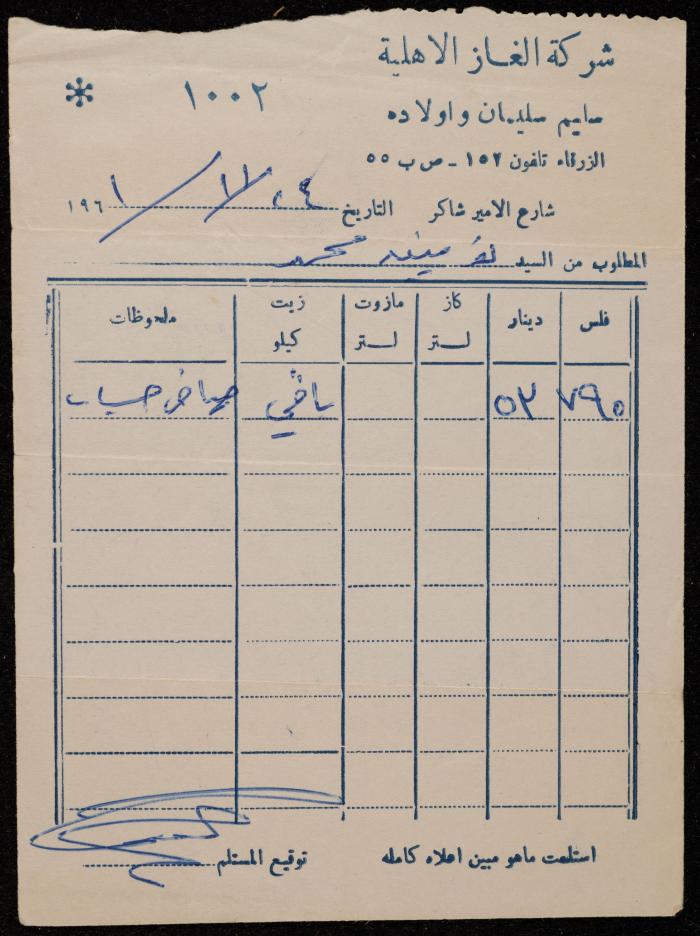 شركة الغاز الاهلية
١٠٠٢ *
سليم سليمان واولاده
الزرقاء تلفون ١٥٢ - ص ب ٥٥
شارع الامير شاكر التاريخ ٢٤ / ١١ / ١٩٦١
المطلوب من السيد محمد
فلس دينار كاز لستر مازوت لستر زيت كيلو ملحوظات
٧٩٥ ٥٢ باقي حساب
استلمت ماهو مبين اعلاه كامله توقيع المستلم